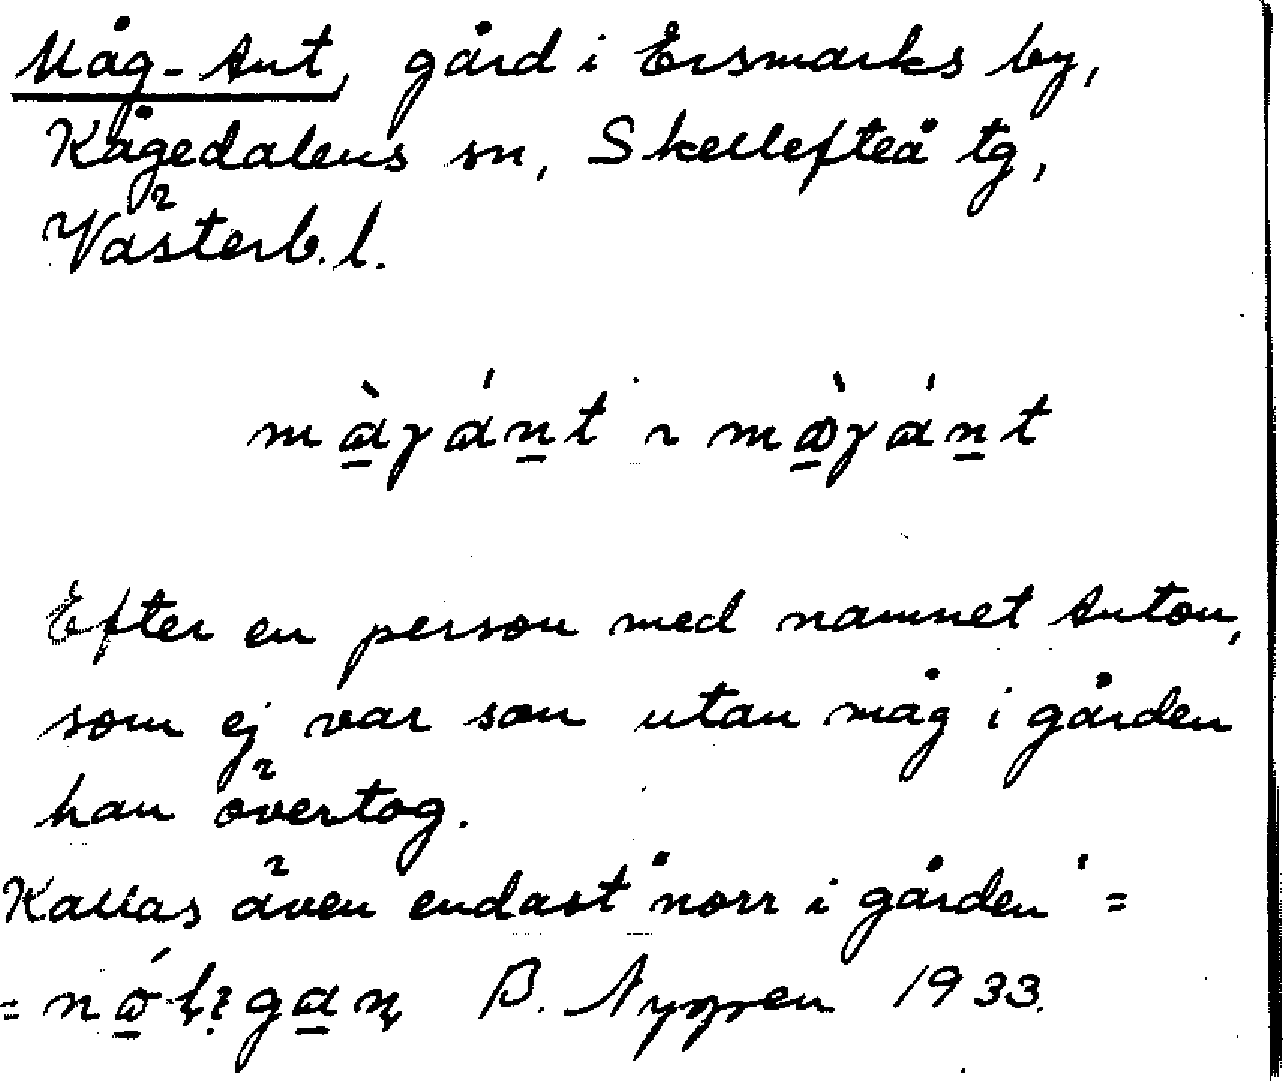 Måg-Ant, gård i Ersmarks by,
Kågedalens sn, Skellefteå tg,
Västerb. l.
Efter en person med namnet Anton,
som ej var son utan måg i gården
han övertog.
Kallas även endast "norr i gården" =
B. Nygren 1933.